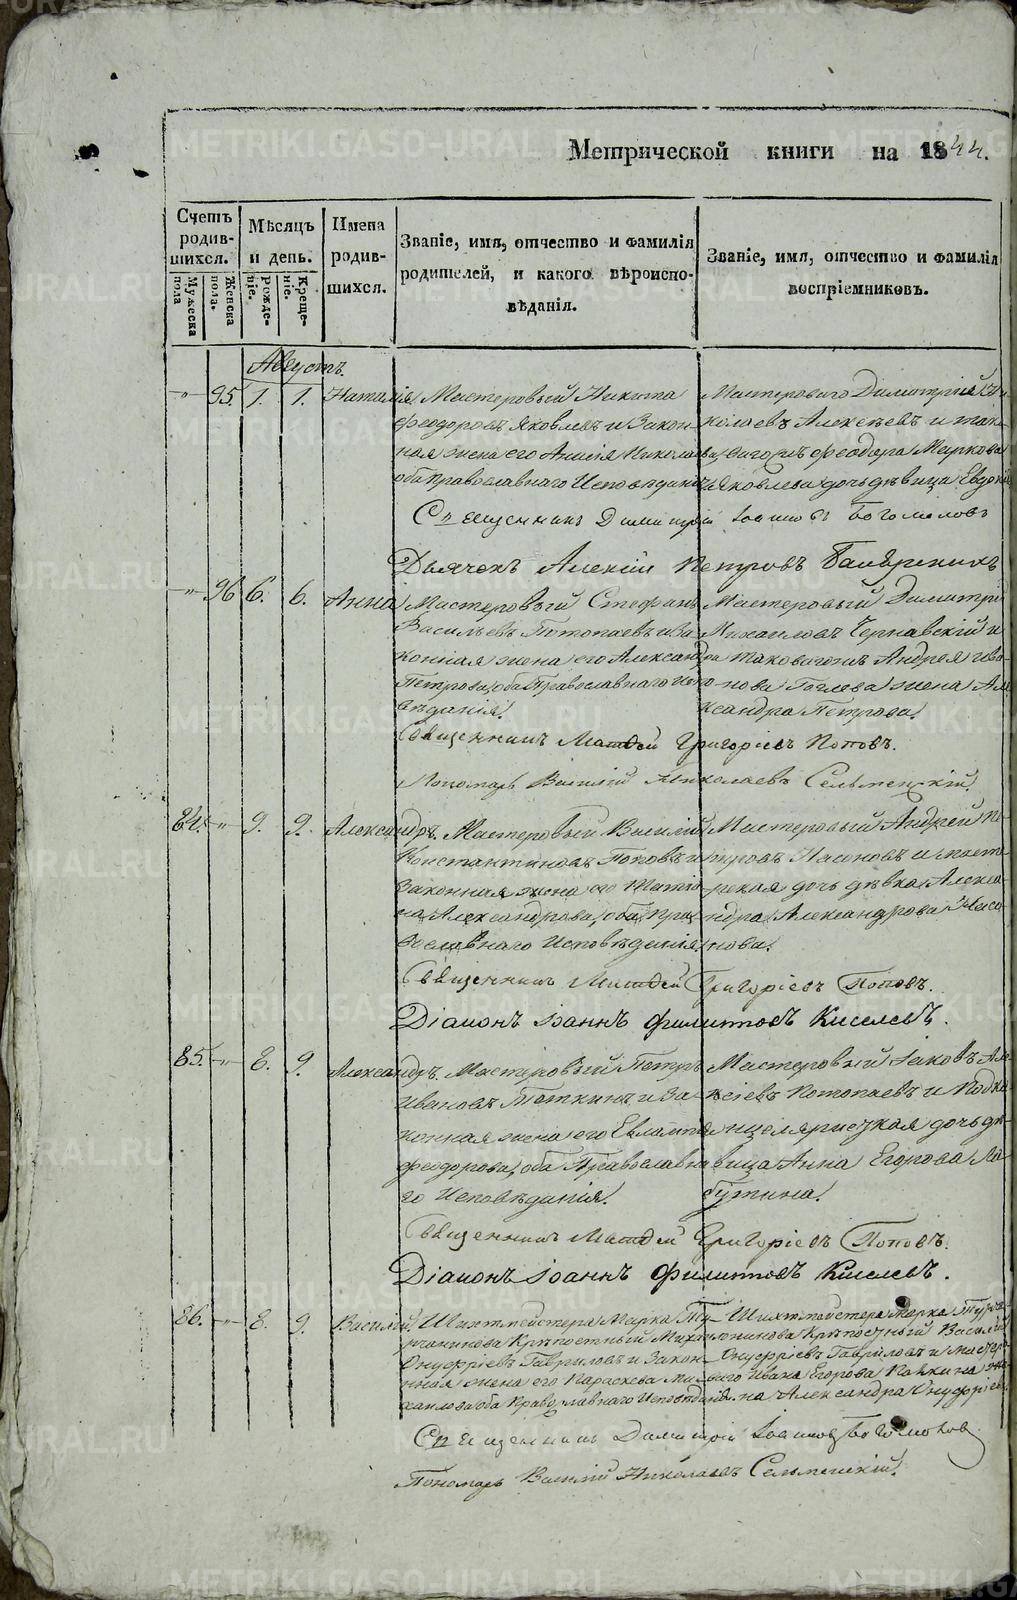 Метрической книги на 1844.
Счетъ родившихся.
Мужеска пола
Женска пола.
Мѣсяцъ и день.
Рожденіе.
Крещеніе.
Имена родившихся.
Званіе, имя, отчество и фамилія родителей, и какого вѣроисповѣданія.
Званіе, имя, отчество и фамилія воспріемниковъ.
Августъ.
95. 1. 1. Наталія
Мастеровый Никита
Феодоровъ Яковлевъ и Закон-
ная жена его Анисія Николаева,
оба Православнаго Исповѣданія
Мастероваго Димитрій Ни-
колаевъ Алексѣевъ и тако-
ваго сынъ Феодора Маркова
Яковлева дочь дѣвица Евдокія
Священникъ Димитрій Іоанновъ Богомоловъ
Дьячекъ Алексій Петровъ
96. 6. 6. Анна
Мастеровый Стефанъ
Васильевъ Потопаевъ и За-
конная жена его Александра
Петрова, оба Православнаго Испо-
вѣданія.
Мастеровый Димитрій
Михаиловъ Чернавскій и
таковагожъ Андрея Ива-
нова жена Але-
ксандра Петрова.
Священникъ Матѳей Григоріевъ Поповъ.
Пономарь Василій Николаевъ Сельменскій.
84. 9. 9. Александръ.
Мастеровый Василій
Константиновъ Поповъ и
Законная жена его Татіа-
на Александрова, оба Пра-
вославнаго Исповѣданія.
Мастеровый Андрей Пе-
тровъ Насоновъ и масте-
рская дочь дѣвка Алекса-
ндра Александрова Насо-
нова.
Священникъ Матѳей Григоріевъ Поповъ.
Діаконъ Іоаннъ Филиповъ Киселевъ.
85. 8. 9. Александръ.
Мастеровый Петръ
Ивановъ Теткинъ и За-
конная жена его Евлампія
Феодорова, оба Православна-
го Исповѣданія.
Мастеровый Іаковъ Але-
ксіевъ Потопаевъ и Подка-
нцеляристкая дочь дѣ-
вица Анна Егорова Ла-
бутина.
Священникъ Матѳей Григоріевъ Поповъ.
Діаконъ Іоаннъ Филиповъ Киселевъ.
86. 8. 9. Василій.
Шихтмейстера Марка Ту-
рчанинова Крѣпостный
Онуфріевъ Гавриловъ и Закон-
ная жена его Параскева Ми-
хаилова оба Православнаго Исповѣданія.
Шихтмейстера Марка Турча-
нинова Крѣпостный Василій
Онуфріевъ Гавриловъ и масте-
роваго Ивана Егорова же-
на Александра Онуфріева.
Священникъ Димитрій Іоанновъ Богомоловъ.
Пономарь Василій Николаевъ Сельменскій.
METRIKI.GASO-URAL.RU